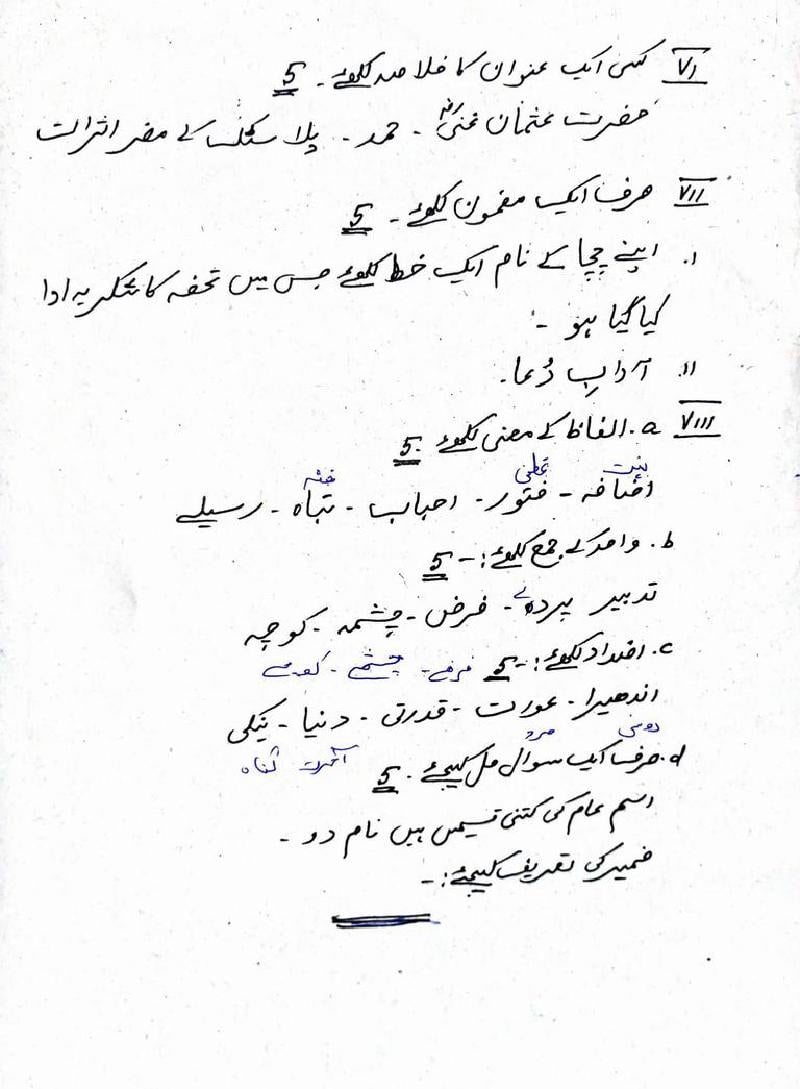 VI کسی ایک عنوان کا خلاصہ لکھئے۔ 5
حضرت عثمان غنیؓ ۔ حمد ۔ پلاسٹک کے مضر اثرات
VII صرف ایک مضمون لکھئے۔ 5
۱. اپنے چچا کے نام ایک خط لکھئے جس میں تحفہ کا شکریہ ادا
کیا گیا ہو ۔
۱۱. آدابِ دُعا۔
VIII a. الفاظ کے معنی لکھئے۔ 5
غلطی
اضافہ ۔ فتور ۔ احباب ۔ تباہ ۔ رسیلے
b. واحد کے جمع لکھئے:۔ 5
تدبیر پردہ ۔ فرض ۔ چشمہ ۔ کوچہ
c. اضداد لکھئے:۔ 5 چشمے ۔
اندھیرا ۔ عورت ۔ قدرتی ۔ دنیا ۔ نیکی
مرد
d. صرف ایک سوال حل کیجئے۔ 5 آخرت گناہ
اسم عام کی کتنی قسمیں ہیں نام دو ۔
ضمیر کی تعریف کیجئے:۔